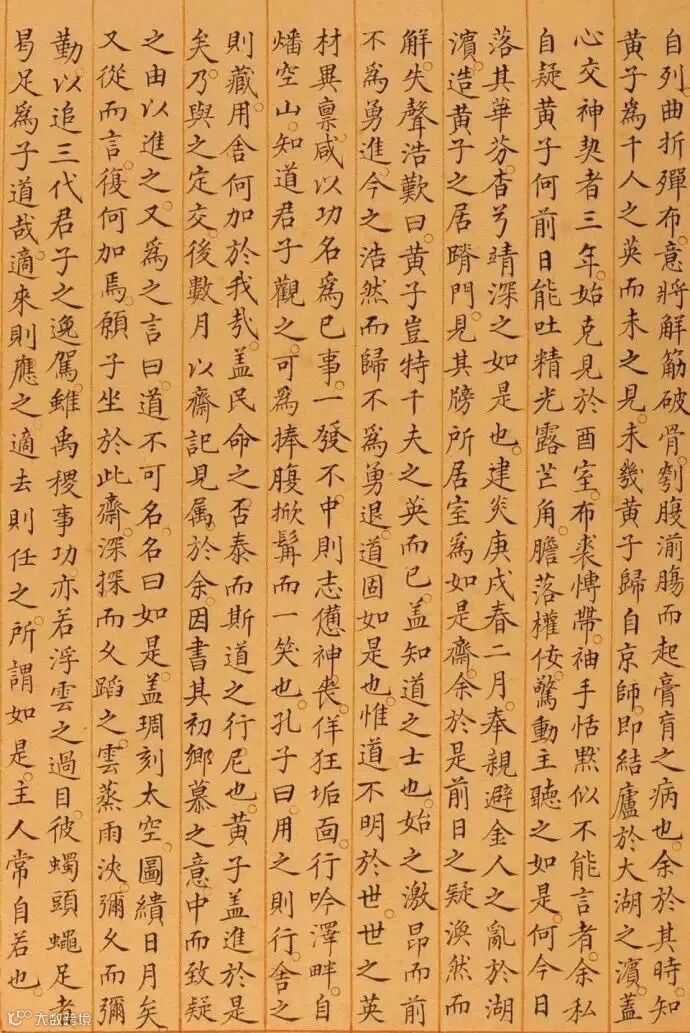 自列。曲折殫布。意將解筋破骨。刳腹湔腸而起膏肓之病也。余於其時。知
黄子爲千人之英而未之見。未幾黄子歸自京師。即結廬於大湖之濱。蓋
心交神契者三年。始克見於酉室。布裘慱帶。袖手恬默似不能言者。余私
自疑黄子何前日能吐精光露芒角。膽落權伎。驚動主聽之如是。何今日
落其華芬。杳兮靖深之如是也。建炎庚戌春二月。奉親避金人之亂於湖
濱。造黄子之居。躋門。見其牓所居室爲如是齋。余於是前日之疑渙然而
解。失聲浩歎曰。黄子豈特千夫之英而已。盖知道之士也。始之激昂而前
不爲勇進。今之浩然而歸不爲勇退。道固如是也。惟道不明於世。世之英
材異禀。咸以功名爲已事。一發不中則志憊神喪。佯狂垢面。行吟澤畔。自
燔空山。知道君子觀之。可爲捧腹掀髯而一笑也。孔子曰。用之則行。舍之
則藏。用舍何加於我哉。盖民命之否泰而斯道之行尼也。黄子盖進於是
矣。乃與之定交。後數月。以齋記見属於余。因書其初鄉慕之意。中而致疑
之由以進之。又爲之言曰。道不可名。名曰如是。盖琱刻太空。圖繢日月矣
又從而言。復何加焉。願子坐於此齋。深探而久蹈之。雲蒸雨浹。彌久而彌
勤。以追三代君子之逸駕。雖禹稷事功亦若浮雲之過目。彼蠋頭蠅足者
曷足爲子道哉。適來則應之。適去則任之。所謂如是。主人常自若也。
大数跨境